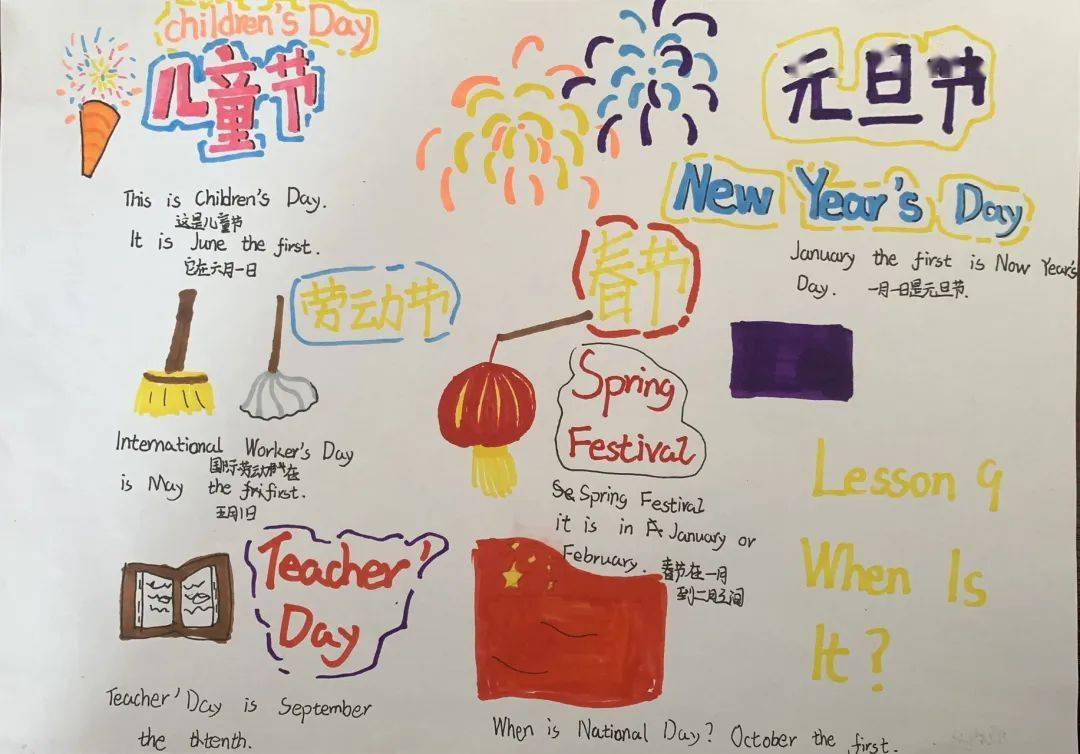 children's Day
儿童节
This is Children's Day.
这是儿童节
It is June the first.
它在六月一日
元旦节
New Year's Day
January the first is Now Year's
Day. 一月一日是元旦节.
劳动节
International Worker's Day
国际劳动节在
is May the first.
五月1日
春节
Spring
Festival
Spring Festival
it is in January or
February. 春节在一月
到二月之间
Lesson 9
When Is
It?
Teacher'
Day
Teacher' Day is September
the tenth.
When is National Day? October the first.